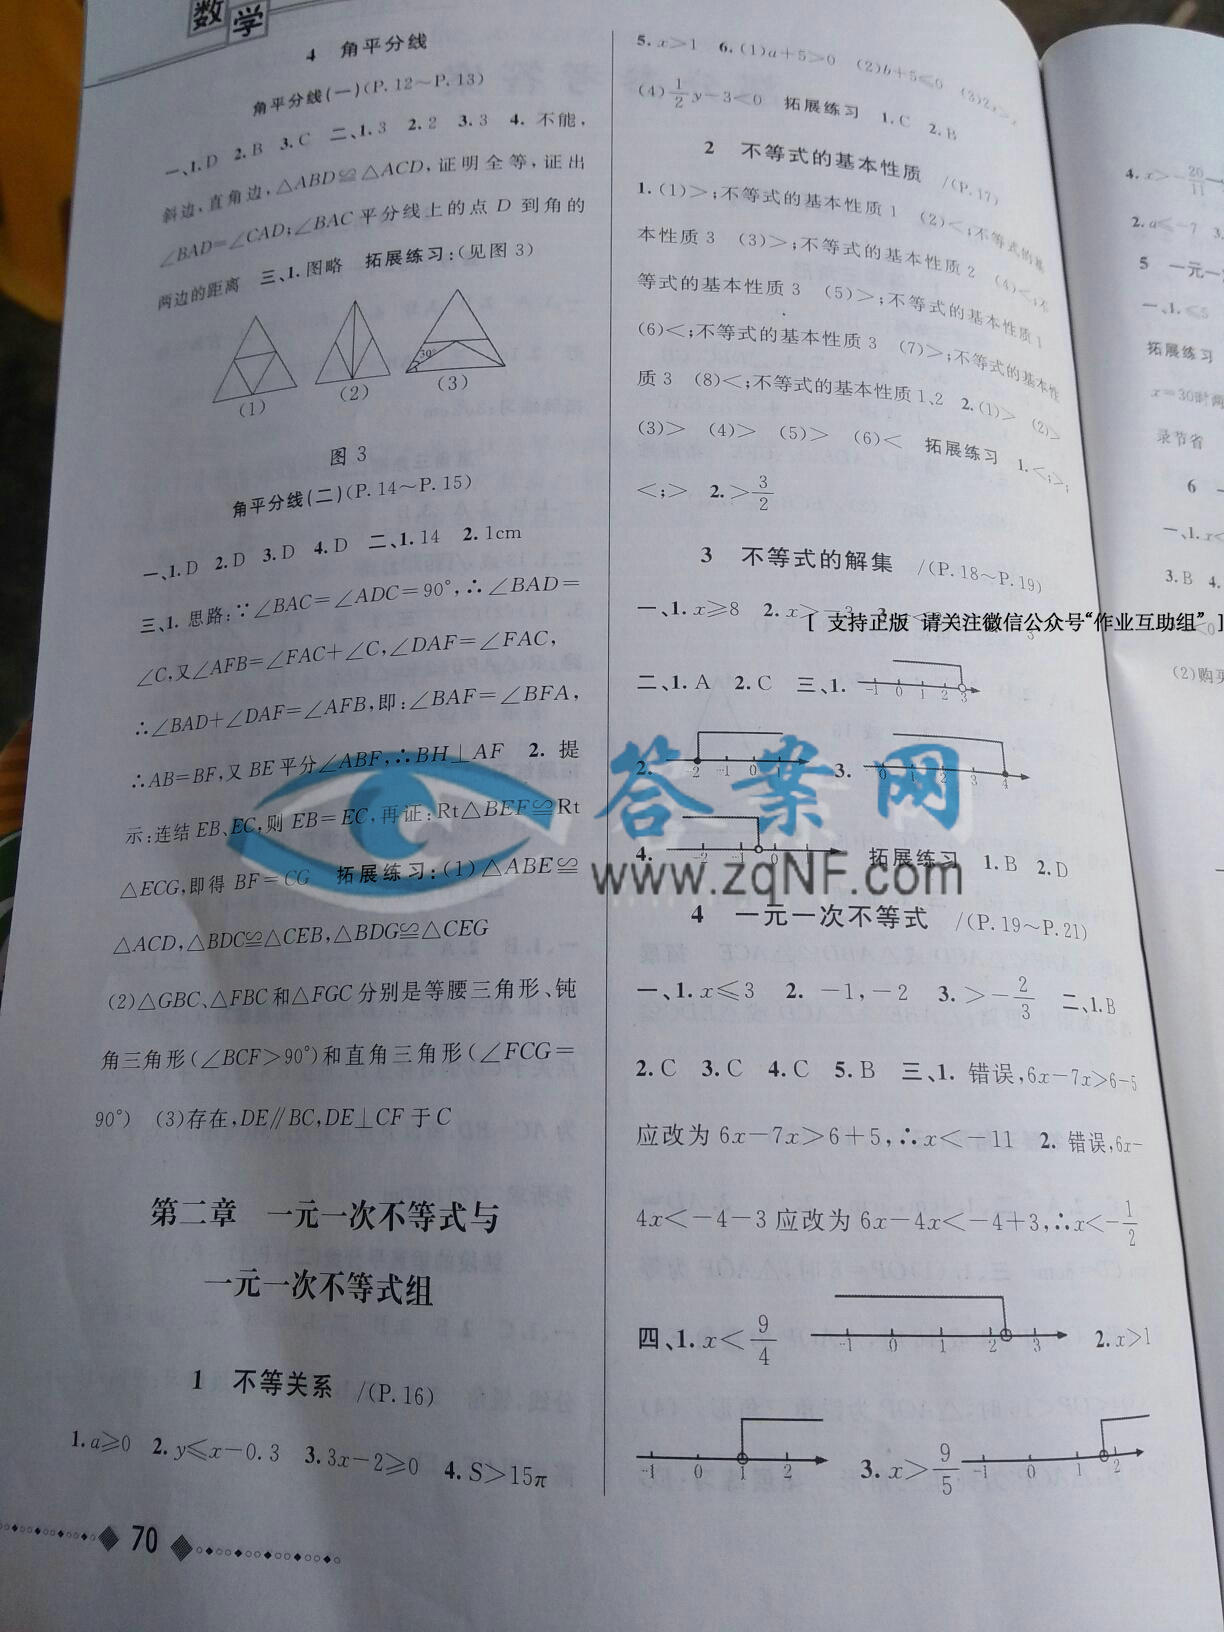 数学
4 角平分线
角平分线(一)(P.12～P.13)
一、1.D 2.B 3.C 二、1.3 2.2 3.3 4. 不能,
斜边,直角边,△ABD≌△ACD,证明全等,证出
∠BAD=∠CAD;∠BAC平分线上的点 D 到角的
两边的距离 三、1.图略 拓展练习:(见图 3)
30°
(1) (2) (3)
图 3
角平分线(二)(P.14～P.15)
一、1.D 2.D 3.D 4.D 二、1.14 2.1cm
三、1. 思路:∵∠BAC=∠ADC=90°,∴∠BAD=
∠C,又∠AFB=∠FAC+∠C,∠DAF=∠FAC,
∴∠BAD+∠DAF=∠AFB,即:∠BAF=∠BFA,
∴AB=BF,又 BE平分∠ABF,∴BH⊥AF 2. 提
示:连结 EB、EC,则 EB=EC,再证:Rt△BEF≌Rt
△ECG,即得 BF=CG 拓展练习:(1)△ABE≌
△ACD,△BDC≌△CEB,△BDG≌△CEG
(2)△GBC、△FBC和△FGC分别是等腰三角形、钝
角三角形(∠BCF>90°)和直角三角形(∠FCG=
90°) (3)存在,DE∥BC,DE⊥CF于C
第二章 一元一次不等式与
一元一次不等式组
1 不等关系 /(P.16)
1.a≥0 2.y≤x-0.3 3.3x-2≥0 4.S>15π
70
5.x>1 6.(1)a+5>0 (2)b+5≤0
(4)1/2y-3<0 拓展练习 1.C 2.B
2 不等式的基本性质 /(P.17)
1.(1)>;不等式的基本性质1 (2)<;不等式的基
本性质3 (3)>;不等式的基本性质2 (4)<;不
等式的基本性质3 (5)>;不等式的基本性质1
(6)<;不等式的基本性质3 (7)>;不等式的基本性
质3 (8)<;不等式的基本性质1、2 2.(1)> (2)>
(3)> (4)> (5)> (6)< 拓展练习 1.<;>;
<;> 2.>3/2
3 不等式的解集 /(P.18～P.19)
一、1.x≥8 2.x>-3
[ 支持正版 请关注微信公众号“作业互助组” ]
二、1.A 2.C 三、1. -1 0 1 2 3
2. -2 -1 0 1 3. 0 1 2 3 4
答案网
4. -2 -1 0 1 拓展练习 1.B 2.D
www.zqNF.com
4 一元一次不等式 /(P.19～P.21)
一、1.x≤3 2. -1,-2 3.>-2/3 二、1.B
2.C 3.C 4.C 5.B 三、1. 错误,6x-7x>6-5
应改为6x-7x>6+5,∴x<-11 2. 错误,6x-
4x<-4-3应改为6x-4x<-4+3,∴x<-1/2
四、1.x<9/4 -1 0 1 2 3 2.x>1
-1 0 1 2 3.x>9/5 -1 0 1 2
2.a≤-7
5 一元一
一、1.≤5
拓展练习
x=30时两
录节省
6
一、1.x<
3.B 4.
(2)购买